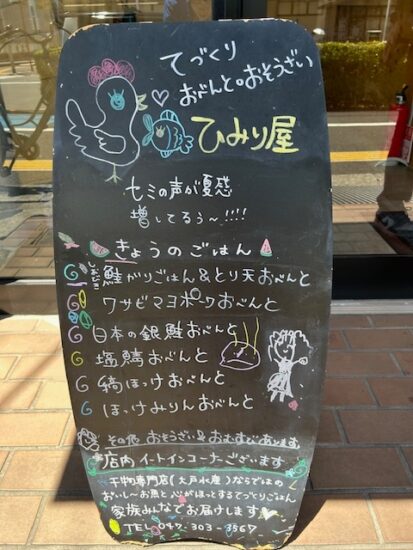 てづくり
おべんとのおそうざい
ひみり屋
セミの声が夏感
増してるぅ〜!!!!
きょうのごはん
鮭がりごはん&とり天おべんと
ワサビマヨポークおべんと
日本の銀鮭おべんと
塩鯖おべんと
縞ほっけおべんと
ほっけみりんおべんと
その他 おそうざい&おむすびあります
店内イートインコーナーございます
干物専門店(大戸水産)ならではの
おいし〜お魚と心がほっとするてづくりごはん
家族みんなでお届けします
TEL 047-303-3567